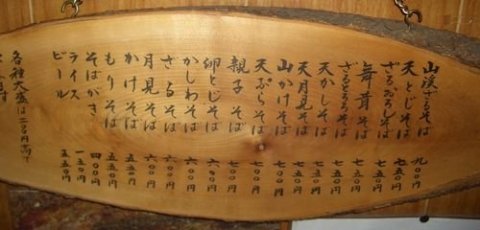 山渓ざるそば 九〇〇円
天とじそば 七五〇円
ざるおろしそば 七五〇円
ざるとろろそば 七五〇円
舞茸そば 七五〇円
天かしそば 七五〇円
天月見そば 七五〇円
山かけそば 七〇〇円
天ぷらそば 七〇〇円
親子そば 七〇〇円
卵とじそば 六〇〇円
かしわそば 六〇〇円
ざるそば 六〇〇円
月見そば 六〇〇円
かけそば 五五〇円
もりそば 五五〇円
そばがき 四〇〇円
ライス 一五〇円
ビール 五五〇円
各種大盛は二百円高